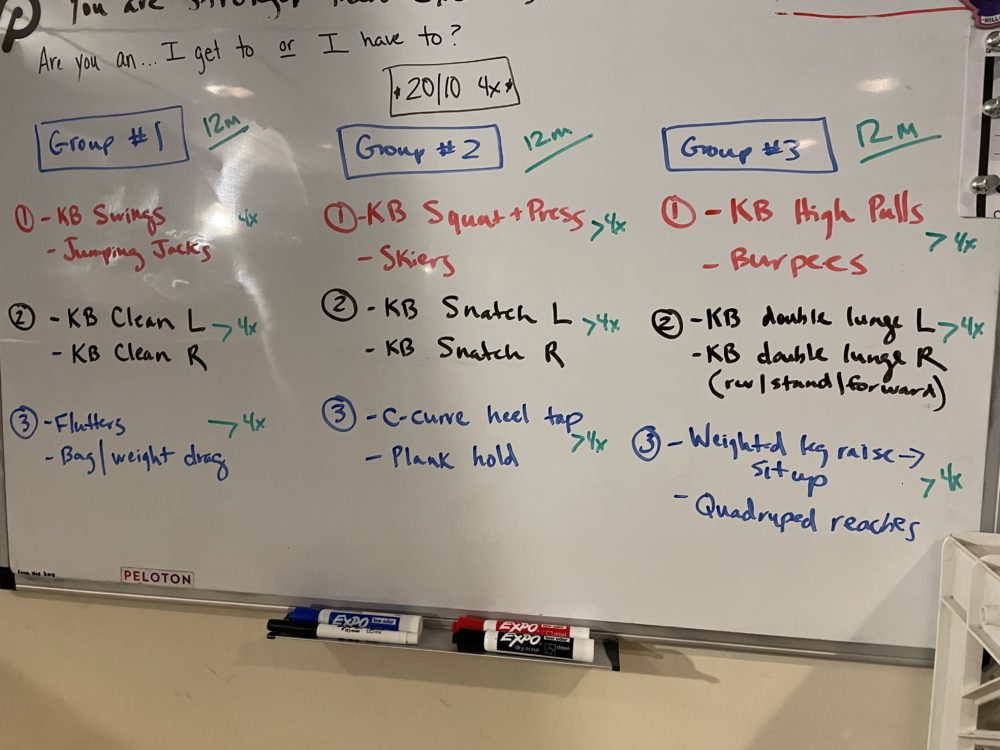 You are stronger than
Are you an... I get to or I have to?
* 20/10 4x *
Group #1 12m
① - KB Swings 4x
- Jumping Jacks
② - KB Clean L > 4x
- KB Clean R
③ - Flutters > 4x
- Bag/weight drag
Group #2 12m
① - KB Squat + Press > 4x
- Skiers
② - KB Snatch L > 4x
- KB Snatch R
③ - C-curve heel tap > 4x
- Plank hold
Group #3 12m
① - KB High Pulls > 4x
- Burpees
② - KB double lunge L > 4x
- KB double lunge R
(rev/stand/forward)
③ - Weighted leg raise →
sit up > 4x
- Quadruped reaches
PELOTON
EXPO
EXPO
EXPO
dry erase